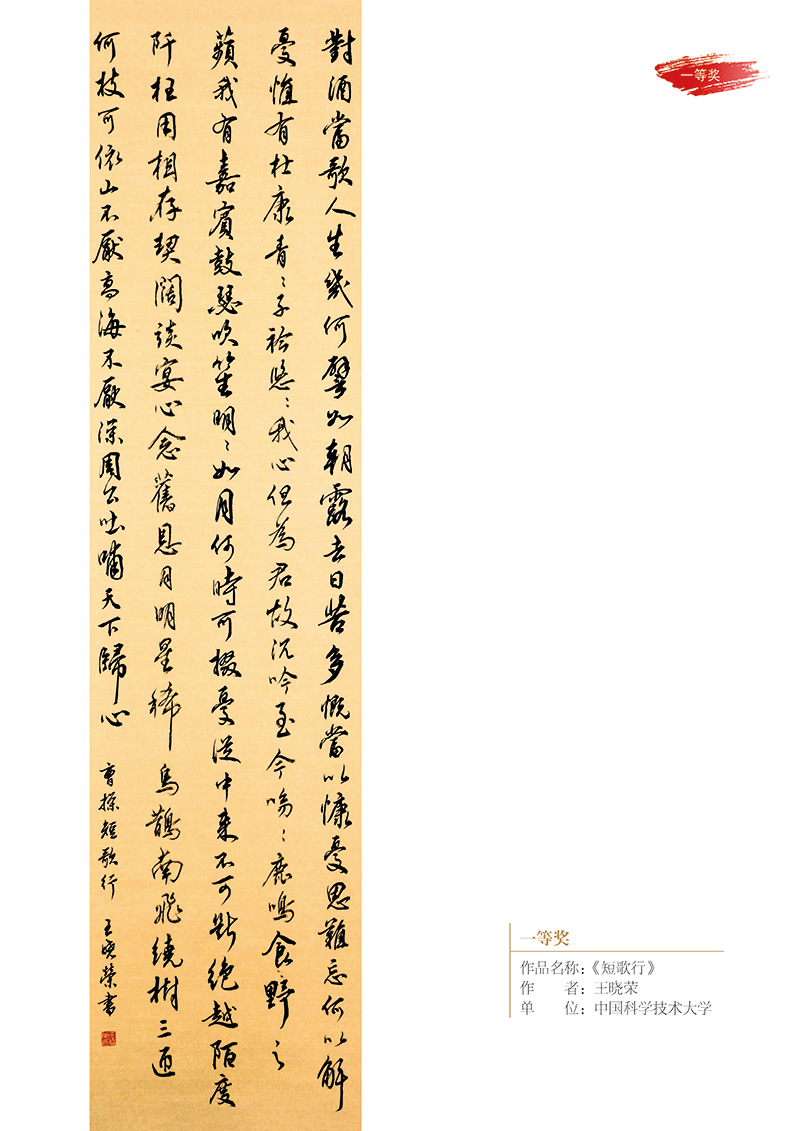 一等奖
對酒當歌人生幾何譬如朝露去日苦多慨當以慷憂思難忘何以解
憂惟有杜康青〻子衿悠〻我心但為君故沉吟至今呦〻鹿鳴食野之
蘋我有嘉賓鼓瑟吹笙明〻如月何時可掇憂從中來不可斷絕越陌度
阡枉用相存契闊談宴心念舊恩月明星稀烏鵲南飛繞樹三匝
何枝可依山不厭高海不厭深周公吐哺天下歸心 曹操短歌行 王曉榮書
一等奖
作品名称：《短歌行》
作　　者：王晓荣
单　　位：中国科学技术大学